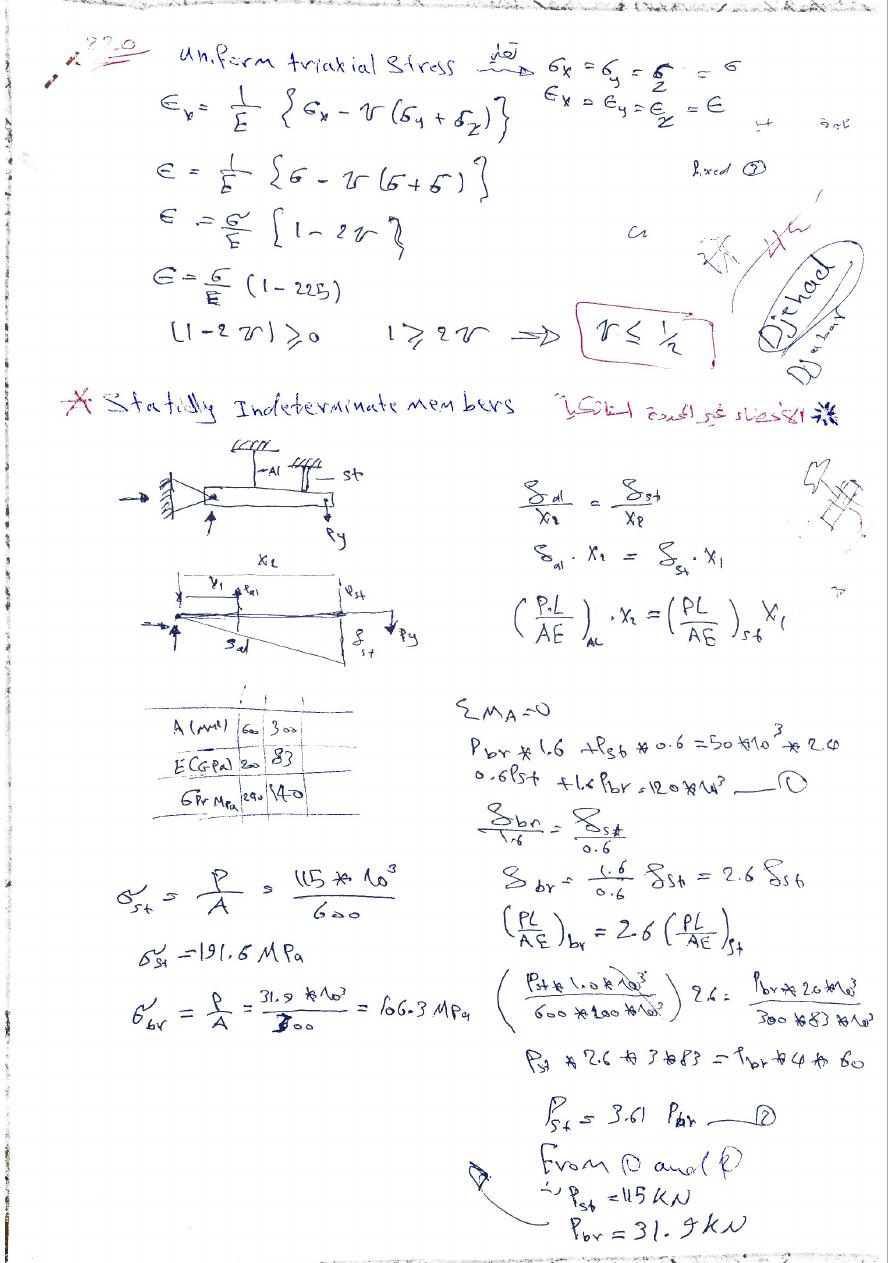 220
uniform triaxial stress → σx = σy = σz = σ
ϵx = ϵy = ϵz = ϵ
ϵx = 1/E {σx - ν(σy + σz)}
fixed ②
ϵ = 1/E {σ - ν(σ+σ)}
ϵ = σ/E {1 - 2ν}
ϵ = σ/E (1 - 225)
(1 - 2ν) ≥ 0   1 ≥ 2ν ⇒ ν ≤ 1/2
Djehad
Djabar
* Statidly Indeterminate members الأعضاء غير المحددة استاتيكياً *
Al
st
Py
δal/x1 = δst/x2
δal . x2 = δst . x1
(P.L/AE)AL . x2 = (PL/AE)st x1
x2
x1
Pal
Pst
δal
δst
Py
A (mm²) 600 300
E (GPa) 200 83
σPr MPa 240 140
ΣMA = 0
Pbr * 1.6 + Pst * 0.6 = 50 * 10³ * 2.4
0.6Pst + 1.6Pbr = 120 * 10³ — ①
δbr/1.6 = δst/0.6
δbr = 1.6/0.6 δst = 2.6 δst
(PL/AE)br = 2.6 (PL/AE)st
(Pst * 1.0 * 10³/600 * 200 * 10³) 2.6 = Pbr * 20 * 10³/300 * 83 * 10³
Pst * 2.6 * 3 * 83 = Pbr * 4 * 60
Pst = 3.61 Pbr — ②
From ① and ②
∴ Pst = 115 KN
Pbr = 31.9 kN
σst = P/A = 115 * 10³/600
σst = 191.6 MPa
σbr = P/A = 31.9 * 10³/300 = 106.3 MPa